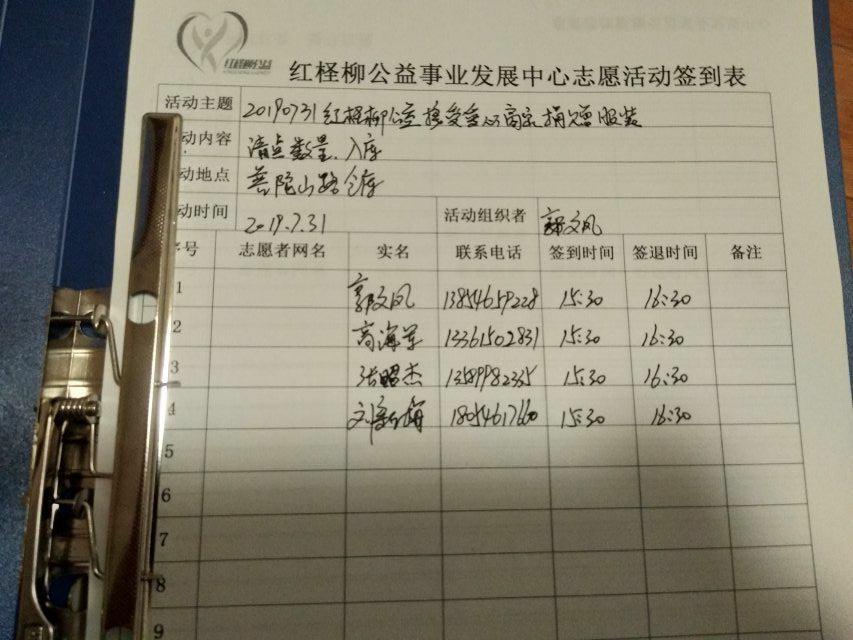 红柽柳公益
红柽柳公益事业发展中心志愿活动签到表
活动主题 20190731红柽柳公益接受爱心商家捐赠服装
动内容 清点数量、入库
动地点 普陀山路仓库
动时间 2019.7.31 活动组织者 郭文凤
序号 志愿者网名 实名 联系电话 签到时间 签退时间 备注
1 郭文凤 13854659228 15:30 16:30
2 高海军 13361502831 15:30 16:30
3 张昭杰 13589982335 15:30 16:30
4 刘 梅 18054617660 15:30 16:30
5
6
7
8
9